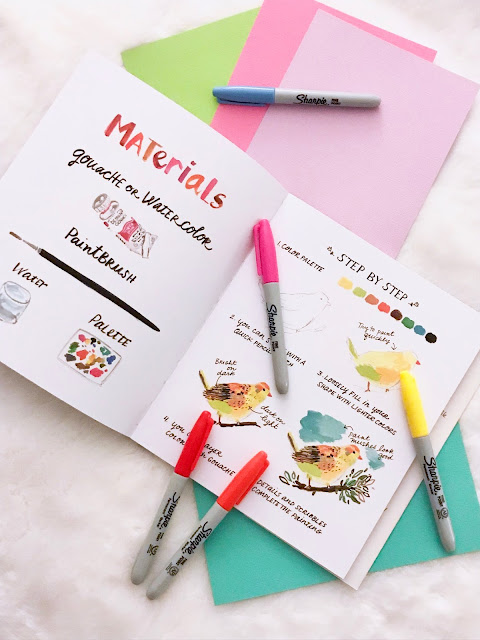 MATERIALS
GOUACHE OR WATERCOLOR
PAINTBRUSH
WATER
PALETTE
STEP BY STEP
1. COLOR PALETTE
2. YOU CAN S
WITH A
QUICK
Try to paint quickly
3. LOOSELY FILL IN YOUR
SHAPE WITH LIGHTER COLORS
Bright on dark
dark on light
4. YOU
LAYER
COLOR
GOUACHE
paint mushes look good
DETAILS AND SCRIBBLES
COMPLETE THE PAINTING
Sharpie
Sharpie
Sharpie
Sharpie
Sharpie